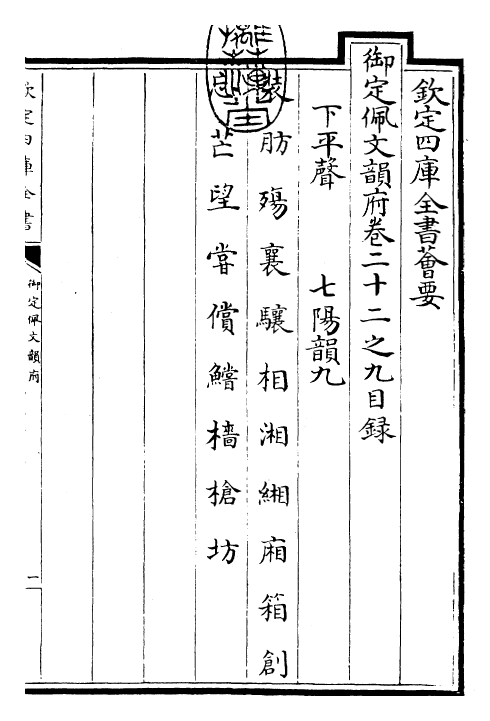 欽定四庫全書薈要
御定佩文韻府卷二十二之九目録
下平聲 七陽韻九
裝肪殤襄驤相湘緗廂箱創
芒望甞償鱨檣槍坊
欽定四庫全書
御定佩文韻府
一